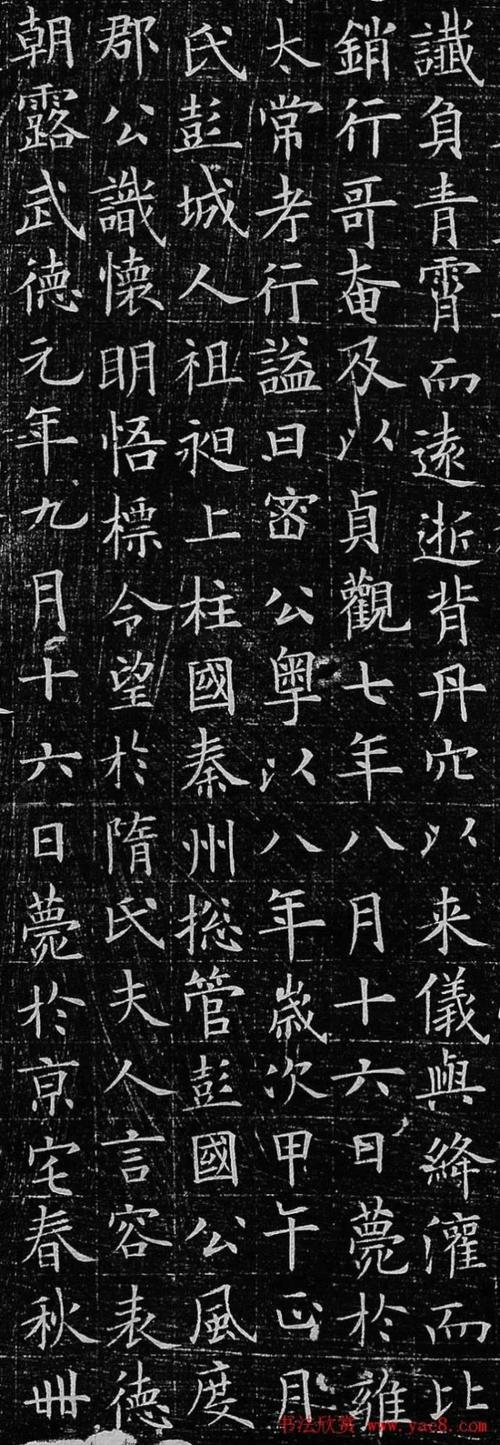 讖負青霄而遠逝背丹穴以来儀與絳灌而比
銷行哥奄及以貞觀七年八月十六日薨於雍
太常考行謚曰密公粵以八年歲次甲午正月
氏彭城人祖昶上柱國秦州揔管彭國公風度
郡公識懷明悟標令望於隋氏夫人言容表德
朝露武德元年九月十六日薨於京宅春秋卌
书法欣赏 www.yac8.com